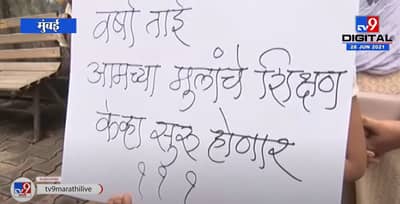 मुंबई
TV9
DIGITAL
26 JUNE 2021
वर्षा ताई
आमच्या मुलांचे शिक्षण
केव्हा सुरु होणार
? ? ?
tv9marathilive